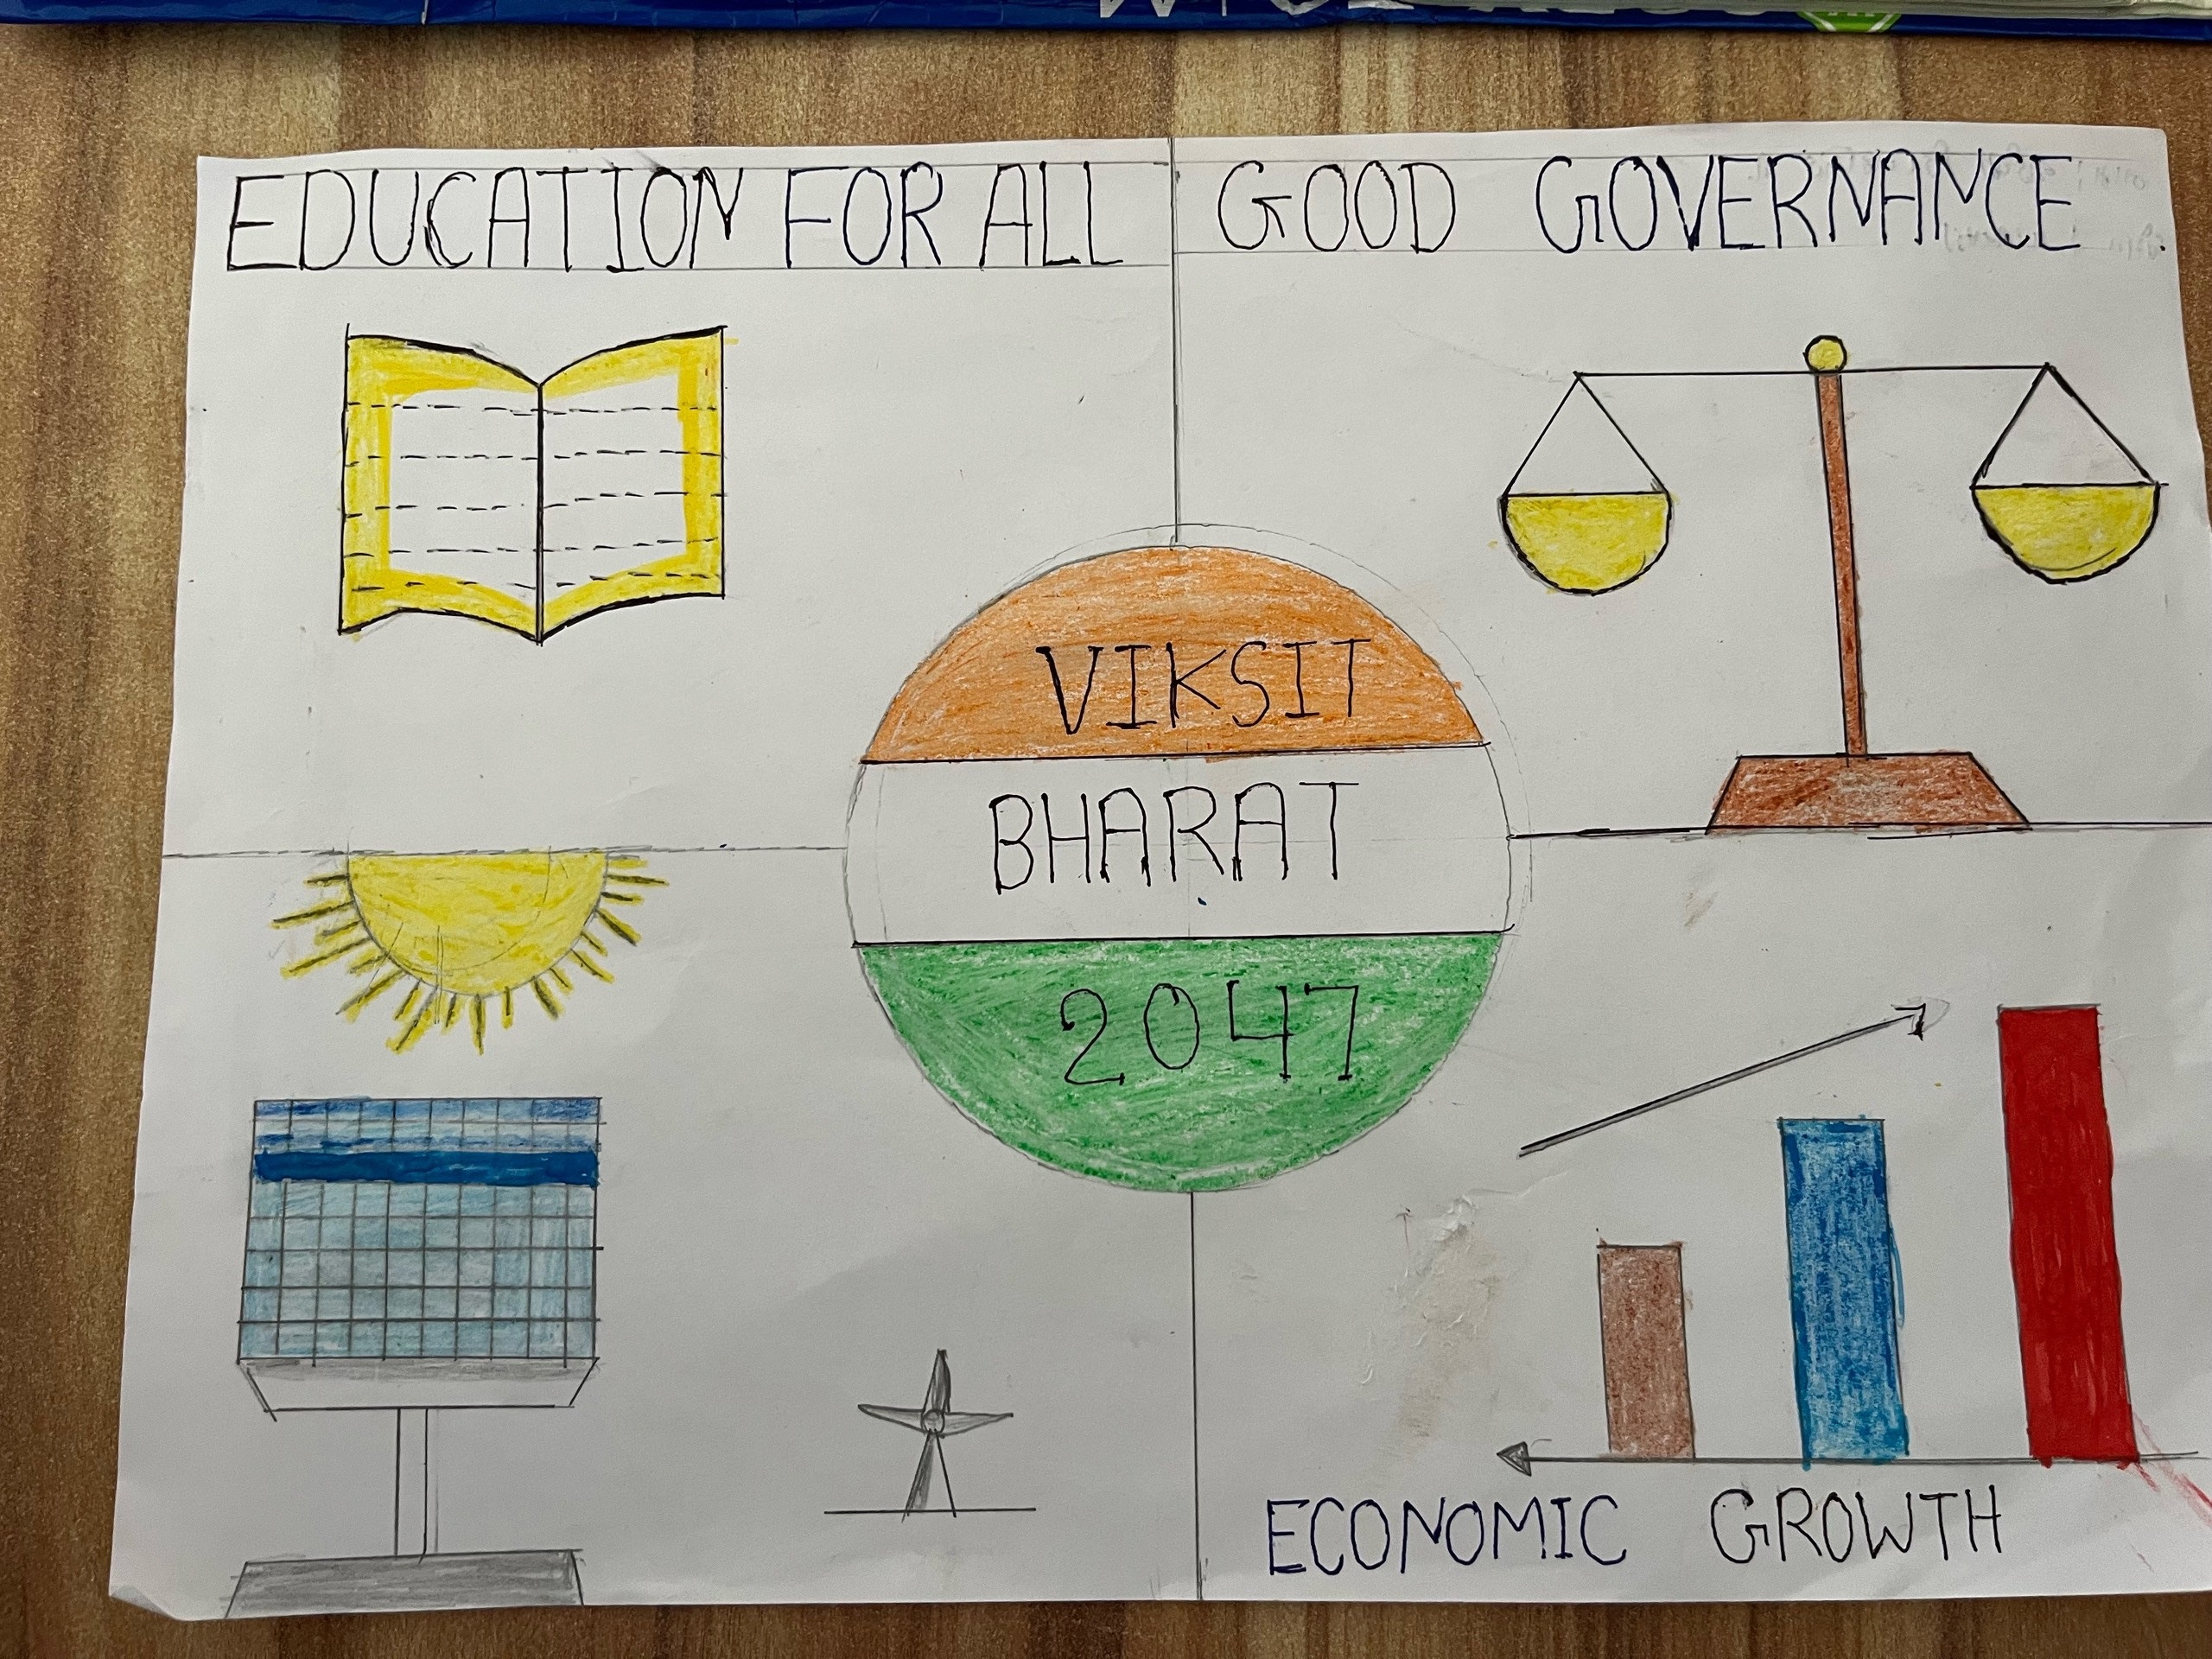 EDUCATION FOR ALL
GOOD GOVERNANCE
VIKSIT
BHARAT
2047
ECONOMIC GROWTH